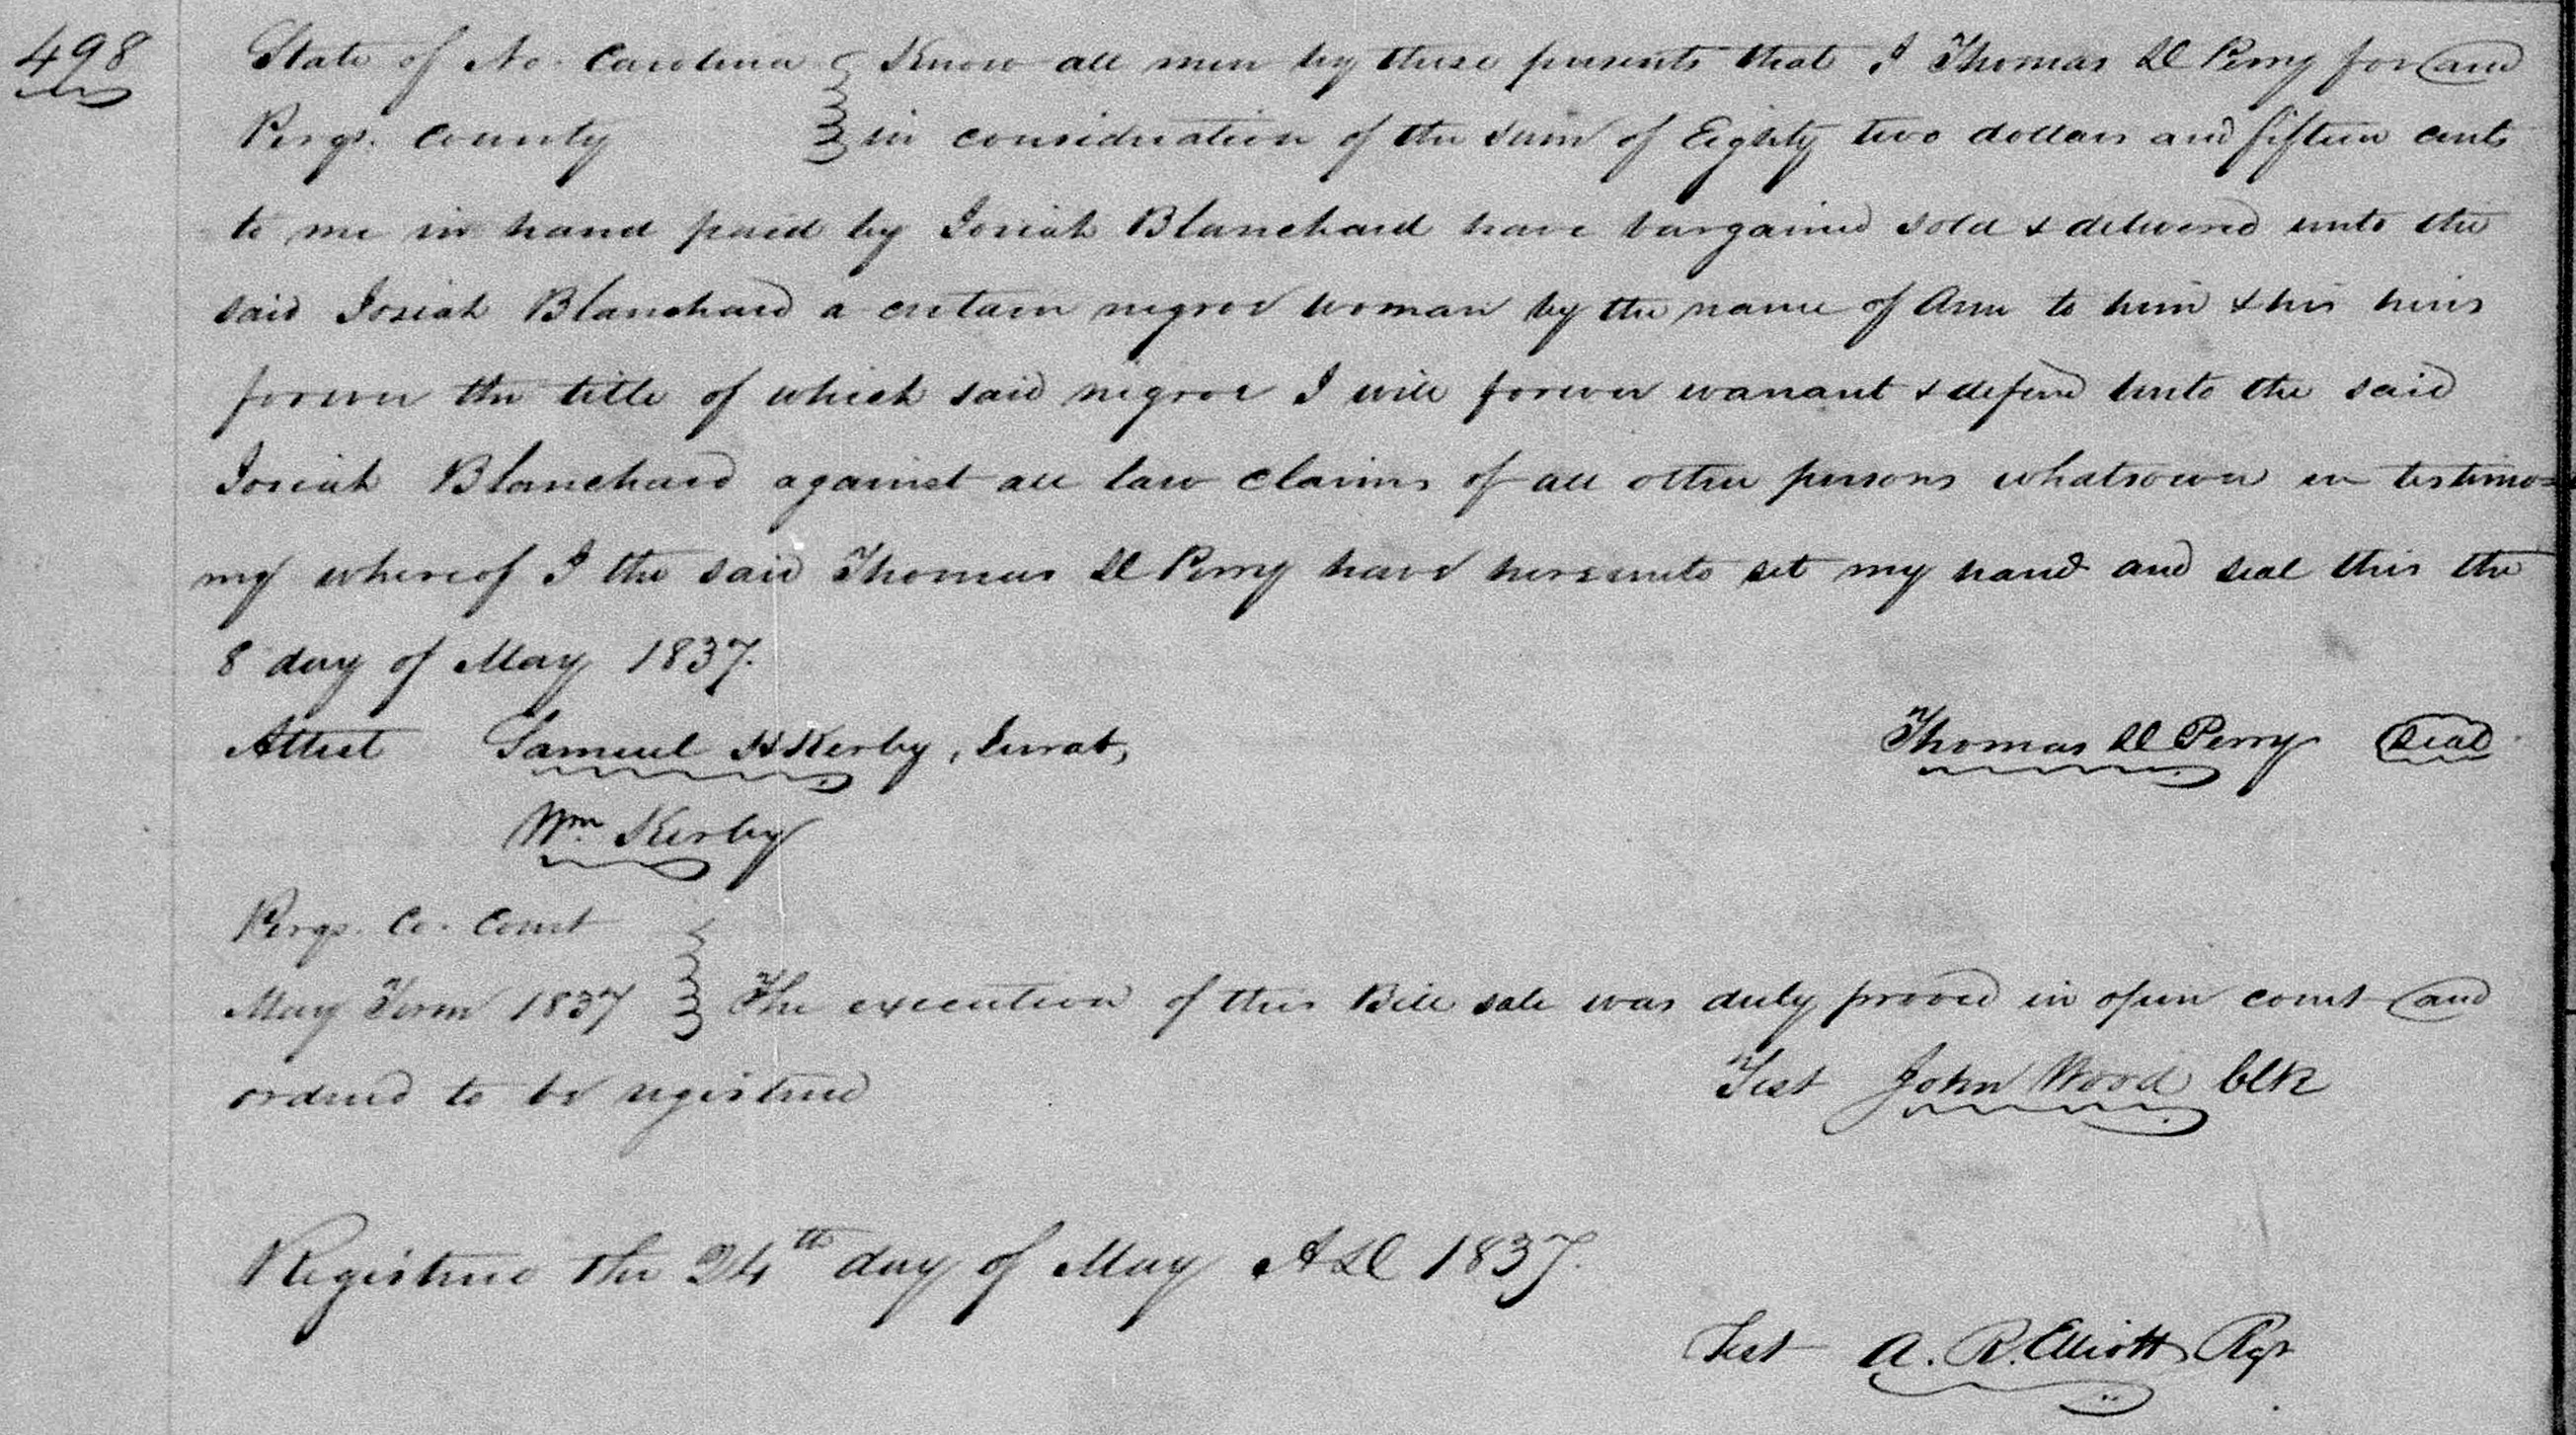 498
State of No. Carolina } Know all men by these presents that I Thomas D Perry for and
Perqs. County } in consideration of the sum of Eighty two dollars and fifteen cents
to me in hand paid by Josiah Blanchard have bargained sold & delivered unto the
said Josiah Blanchard a certain negroe woman by the name of Ann to him & his heirs
forever the title of which said negroe I will forever warrant & defend unto the said
Josiah Blanchard against all law claims of all other persons whatsoever in testimo=
ny whereof I the said Thomas D Perry have hereunto set my hand and seal this the
8 day of May 1837.
Attest Samuel H Kerby, Jurat, Thomas D Perry Seal
Wm. Kerby
Perqs. Co. Court
May Term 1837 } The execution of this Bill sale was duly proved in open court and
ordered to be registered Test John Wood Clk
Registered the 24th day of May A D 1837.
Test A. R. Elliott Regr